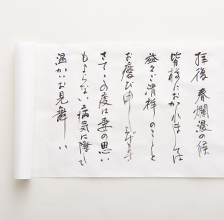 拝復 春爛漫の候
皆様におかれましては
益々ご清祥のことと
お慶び申し上げます
さて、この度は妻の思い
もよらない病気に際して
温かいお見舞い